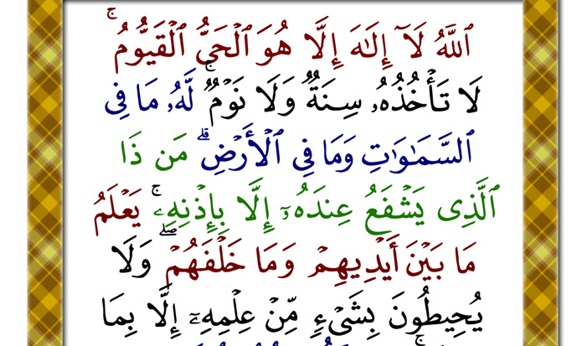 ٱللَّهُ لَآ إِلَـٰهَ إِلَّا هُوَ ٱلْحَىُّ ٱلْقَيُّومُ ۚ
لَا تَأْخُذُهُۥ سِنَةٌ وَلَا نَوْمٌ ۚ لَّهُۥ مَا فِى
ٱلسَّمَـٰوَٰتِ وَمَا فِى ٱلْأَرْضِ ۗ مَن ذَا
ٱلَّذِى يَشْفَعُ عِندَهُۥٓ إِلَّا بِإِذْنِهِۦ ۚ يَعْلَمُ
مَا بَيْنَ أَيْدِيهِمْ وَمَا خَلْفَهُمْ ۖ وَلَا
يُحِيطُونَ بِشَىْءٍ مِّنْ عِلْمِهِۦٓ إِلَّا بِمَا